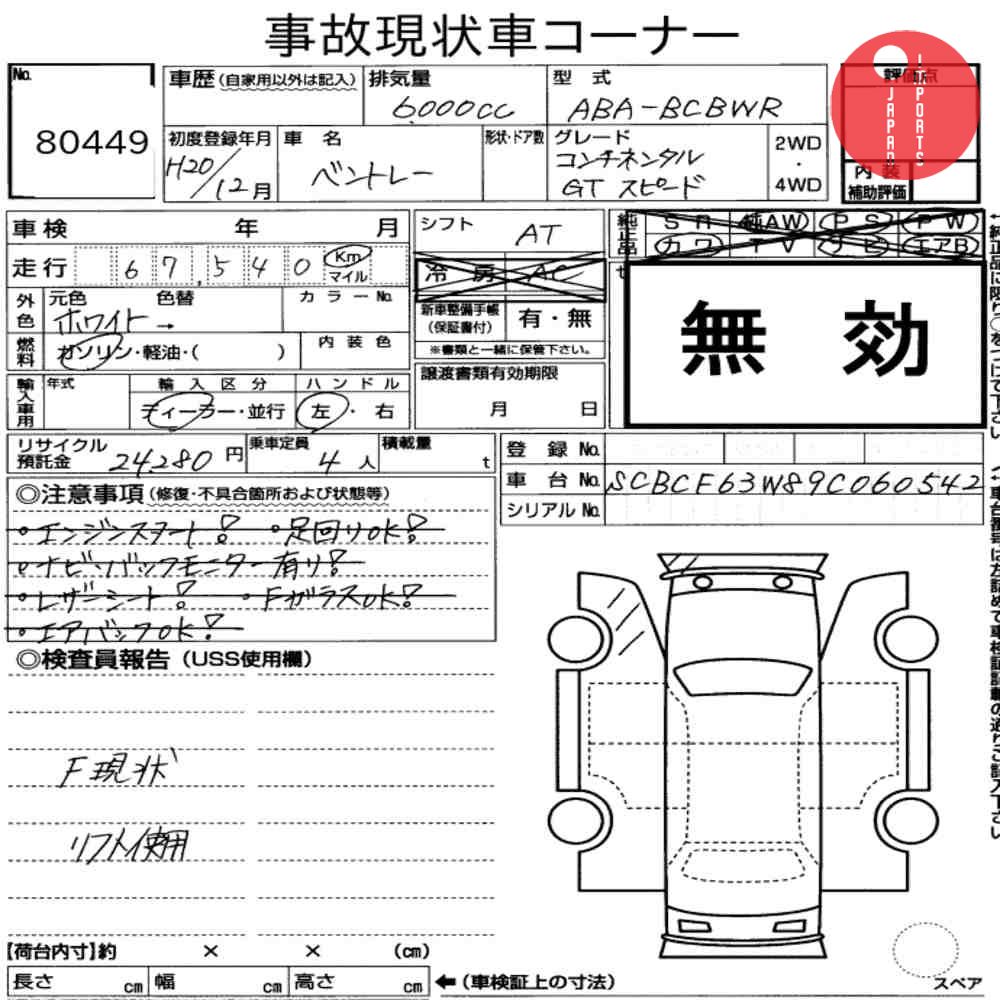 事故現状車コーナー
No.
80449
車歴(自家用以外は記入)
排気量
6.000cc
型 式
ABA-BCBWR
評価点
JAPAN
IMPORTS
初度登録年月
H20/12月
車 名
ベントレー
形状・ドア数
グレード
コンチネンタル
GT スピード
2WD
・
4WD
内 装
補助評価
車検 年 月
シフト
AT
純正品
SR 純AW PS PW
カワ TV ナビ エアB
走行
67,540
Km
マイル
冷 房 AC
外色
元色 色替
ホワイト→
カ ラ ー No.
新車整備手帳
(保証書付)
有・無
※書類と一緒に保管下さい。
燃料
ガソリン・軽油・( )
内 装 色
無 効
輸入車用
年式
輸 入 区 分
ディーラー・並行
ハ ン ド ル
左・右
譲渡書類有効期限
月 日
リサイクル
預託金
24.280 円
乗車定員
4 人
積載量
t
登 録 No.
車 台 No. SCBCF63W89C060542
シリアル No.
◎注意事項(修復・不具合箇所および状態等)
・エンジンスタート! ・足回りOK!
・ナビ・バックモニター有り!
・レザーシート! ・FガラスOK!
・エアバックOK!
◎検査員報告(USS使用欄)
F現状
リフト使用
【荷台内寸】約 × × (cm)
長さ cm 幅 cm 高さ cm
←(車検証上の寸法)
スペア
←純正品に限り○をつけて下さい